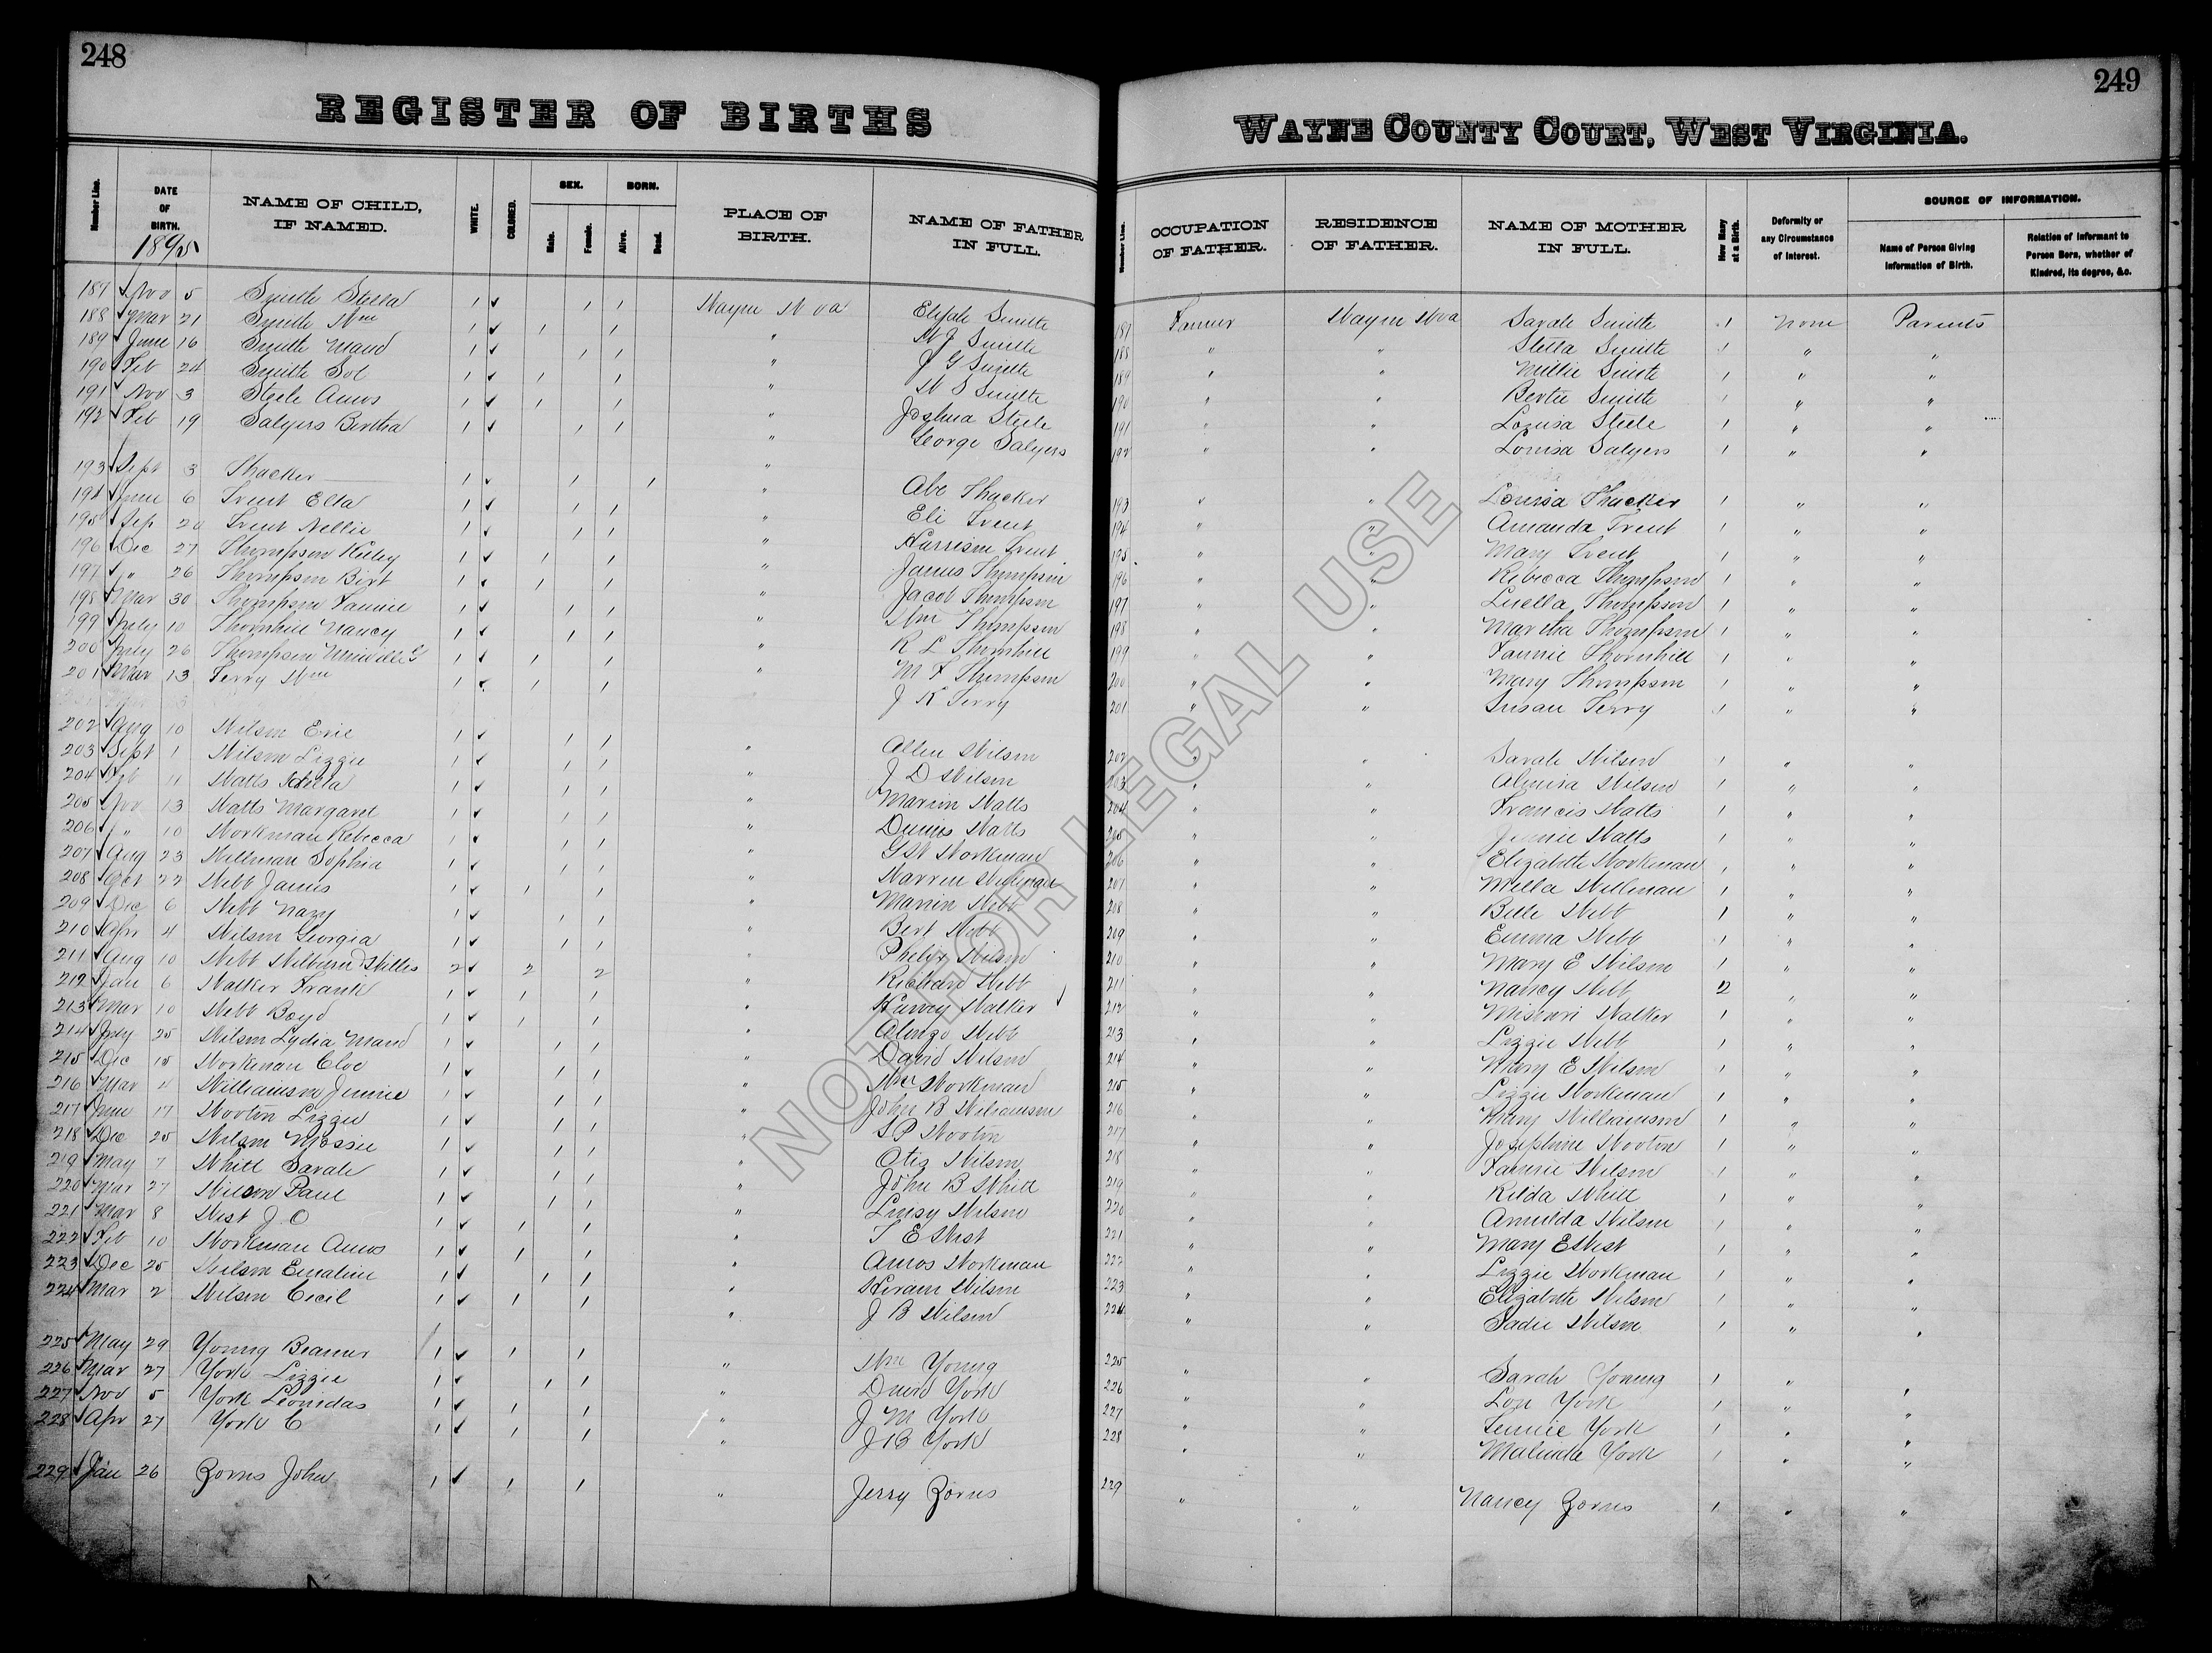 248
REGISTER OF BIRTHS
Number Line.
DATE OF BIRTH.
1895
NAME OF CHILD, IF NAMED.
WHITE.
COLORED.
SEX.
Male.
Female.
BORN.
Alive.
Dead.
PLACE OF BIRTH.
NAME OF FATHER IN FULL.
187 Nov 5 Smith Stella Wayne W va Elijah Smith
188 Mar 21 Smith Wm " W J Smith
189 June 16 Smith Maud " J G Smith
190 Feb 24 Smith Sol " W S Smith
191 Nov 3 Steele Amos " Joshua Steele
192 Feb 19 Salyers Bertha " George Salyers
193 Sept 3 Thacker " Abe Thacker
194 June 6 Trent Ella " Eli Trent
195 Sep 20 Trent Nellie " Harrison Trent
196 Dec 27 Thompson " James Thompson
197 " 26 Thompson Birt " Jacob Thompson
198 Mar 30 Thompson Fannie " Wm Thompson
199 July 10 Thornhill Nancy " R L Thornhill
200 July 26 Thompson " M F Thompson
201 Mar 13 Terry Wm J K Terry
202 Aug 10 Wilson Evie " Allen Wilson
203 Sept 1 Wilson Lizzie " J D Wilson
204 11 Watts " Marion Watts
205 Nov 13 Watts Margaret " Watts
206 " 10 Workman Rebecca " G W Workman
207 Aug 23 Wellman Sophia " Warren Wellman
208 Oct 22 Webb James " Marion Webb
209 Dec 6 Webb " Bert Webb
210 Apr 4 Wilson Georgia " Phelix Wilson
211 Aug 10 Webb Wilburn Willis 2 2 2 " Richard Webb
212 Jan 6 Walker Frank " Harvey Walker
213 Mar 10 Webb Boyd " Alonzo Webb
214 July 25 Wilson Lydia Maud " David Wilson
215 Dec 15 Workman Cloe " Wm Workman
216 Mar Williamson Jennie " John B Williamson
217 June 17 Wooton Lizzie " S P Wooton
218 Dec 25 Wilson Mossie " Otis Wilson
219 May 7 Whitt Sarah " John B Whitt
220 Mar 27 Wilson Paul " Linsy Wilson
221 Mar 8 West J O " T E West
222 Feb 10 Workman Amos " Amos Workman
223 Dec 25 Wilson Emaline " Hiram Wilson
224 Mar 2 Wilson Cecil " J B Wilson
225 May 29 Young " Wm Young
226 Mar 27 York Lizzie " York
227 Nov 5 York Leonidas " J M York
228 Apr 27 York C " J B York
229 Jan 26 Zorns John " Jerry Zorns
249
WAYNE COUNTY COURT, WEST VIRGINIA.
Number Line.
OCCUPATION OF FATHER.
RESIDENCE OF FATHER.
NAME OF MOTHER IN FULL.
How Many at a Birth.
Deformity or any Circumstance of Interest.
SOURCE OF INFORMATION.
Name of Person Giving Information of Birth.
Relation of Informant to Person Born, whether of Kindred, its degree, &c.
187 Farmer Wayne W va Sarah Smith 1 None Parents
188 " " Stella Smith 1 " "
189 " " Millie Smith 1 " "
190 " " Bertie Smith 1 " "
191 " " Louisa Steele 1 " "
192 " " Louisa Salyers 1 " "
193 " " Louisa Thacker 1 " "
194 " " Amanda Trent 1 " "
195 " " Mary Trent 1 " "
196 " " Rebecca Thompson 1 " "
197 " " Luella Thompson 1 " "
198 " " Martha Thompson 1 " "
199 " " Fannie Thornhill 1 " "
200 " " Mary Thompson 1 " "
201 " " Susan Terry 1 " "
202 " " Sarah Wilson 1 " "
203 " " Wilson 1 " "
204 " " Francis Watts 1 " "
205 " " Jennie Watts 1 " "
206 " " Elizabeth Workman 1 " "
207 " " Wellman 1 " "
208 " " Belle Webb 1 " "
209 " " Emma Webb 1 " "
210 " " Mary E Wilson 1 " "
211 " " Nancy Webb 2 " "
212 " " Missouri Walker 1 " "
213 " " Lizzie Webb 1 " "
214 " " Mary E Wilson 1 " "
215 " " Lizzie Workman 1 " "
216 " " Mary Williamson 1 " "
217 " " Josephine Wooton 1 " "
218 " " Fannie Wilson 1 " "
219 " " Rilda Whitt 1 " "
220 " " Wilson 1 " "
221 " " Mary E West 1 " "
222 " " Lizzie Workman 1 " "
223 " " Elizabeth Wilson 1 " "
224 " " Sadie Wilson 1 " "
225 " " Sarah Young 1 " "
226 " " Lou York 1 " "
227 " " York 1 " "
228 " " Malinda York 1 " "
229 " " Nancy Zorns 1 " "
NOT FOR LEGAL USE